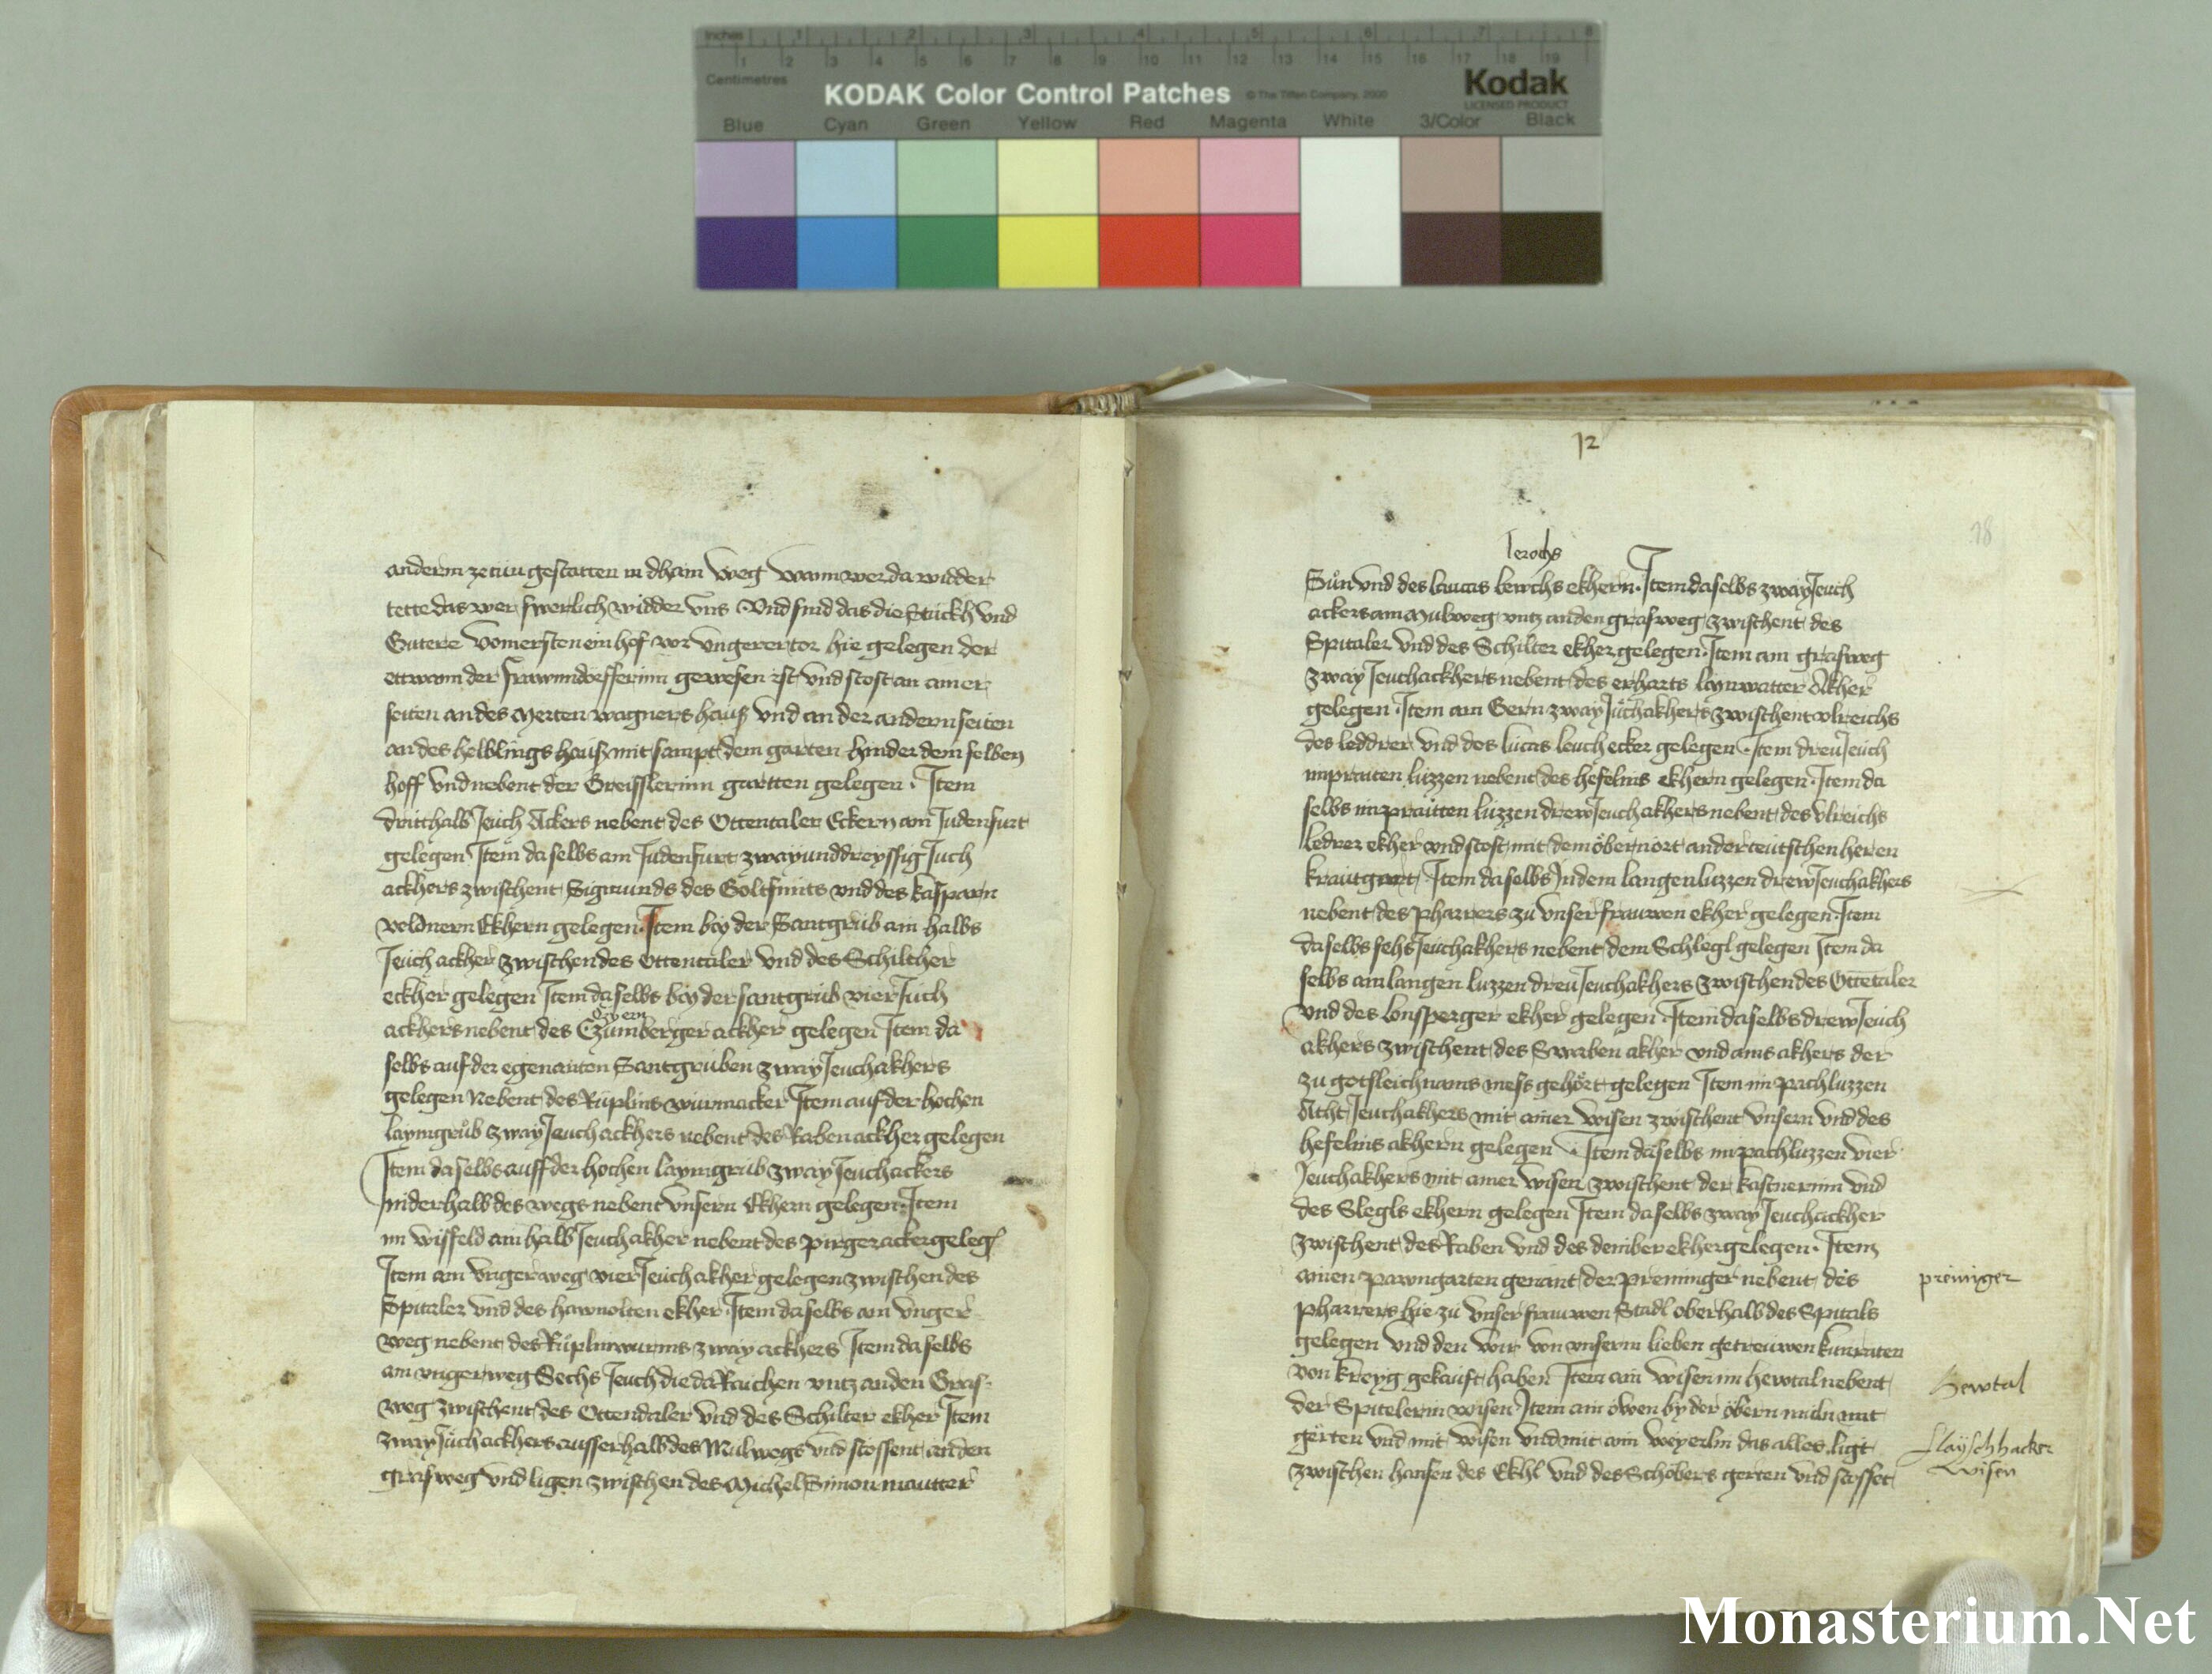 Inches 1 2 3 4 5 6 7 8
1 2 3 4 5 6 7 8 9 10 11 12 13 14 15 16 17 18 19
Centimetres
KODAK Color Control Patches © The Tiffen Company, 2000 Kodak
LICENSED PRODUCT
Blue Cyan Green Yellow Red Magenta White 3/Color Black
anderm zetun gestatten in dhain weg wann wer da widder
tette das wer swerlich widder vns Vnd sind das die Stuckh vnd
Gutere vom ersten ein hof vor vngerer tor hie gelegen der
ettwann der frawnndorfferinn gewesen ist vnd stost an ainer
seiten an des Merten wagners hauss vnd an der andern seiten
an des helblings hauss mit sampt dem garten hinder dem selben
hoff vnd nebent der Greisslerinn gartten gelegen Item
dritthalb Jeuch Ackers nebent des Ottentaler Eckern am Judenfurt
gelegen Item daselbs am Judenfurt zway vnd dreyssig Juch
ackhers zwischent Sigmunds des Goltsmits vnd des kasparn
veldnern Ekhern gelegen Item bey der Santgrub ain halbs
Jeuch ackher zwischen des Ottentaler vnd des Schilther
eckher gelegen Item daselbs bey der santgrub vier Juch
ackhers nebent des Czumberger ackher gelegen Item da
selbs auf der egenanten Santgruben zway Jeuch akhers
gelegen Nebent des Ruplins wurmacker Item auf der hochen
laymgrub zway Jeuch ackhers nebent des Raben ackher gelegen
Item daselbs auff der hochen laymgrub zway Jeuch ackers
niderhalb des wegs nebent vnsern Ekhern gelegen Item
im wisfeld ain halb Jeuch akher nebent des pirger acker geleg
Item am vnger weg vier Jeuch akher gelegen zwischen des
Spitaler vnd des hawnolten ekher Item daselbs am vnger
weg nebent des Ruplinwurms zway ackhers Item daselbs
am vnger weg Sechs Jeuch die da Raichen vntz an den Gras
weg zwischent des Ottendaler vnd des Schilter ekher Item
zway Juch ackhers ausserhalb des Mulwegs vnd stossent an den
grasweg vnd ligen zwischen des Michel Simon mautter
12
18
lerochs
Sun vnd des lucas lerchs ekhern Item daselbs zway Jeuch
ackers am Mulweg vntz an den grasweg zwischent des
Spitaler vnd des Schilter ekher gelegen Item am grasweg
zway Jeuch ackhers nebent des erharts leynwatter Akher
gelegen Item am Gern zway Juch akhers zwischent vlreichs
des leddrer vnd des lucas leuch ecker gelegen Item dreu Jeuch
im praiten luzzen nebent des hefelins ekhern gelegen Item da
selbs im praitten luzzen drew Jeuch akhers nebent des vlreichs
ledrer ekher vnd stost mit dem obern ort an der teutschen heren
krautgart Item daselbs In dem langen luzzen drew Jeuch akhers
nebent des pharrers zu vnser frauwen ekher gelegen Item
daselbs sehs Jeuch akhers nebent dem Schlegl gelegen Item da
selbs am langen luzzen dreu Jeuch akhers zwischen des Ottetaler
vnd des lonsperger ekher gelegen Item daselbs drew Jeuch
akhers zwischent des Swaben akher vnd ains akhers der
zu gotsleichnams mess gehort gelegen Item im pachluzzen
Acht Jeuch akhers mit ainer wisen zwischent vnsern vnd des
hefelins akhern gelegen Item daselbs im pachluzzen vier
Jeuch akhers mit ainer wisen zwischent der kastnerinn vnd
des Slegls ekhern gelegen Item daselbs zway Jeuch ackher
zwischent des Raben vnd des ekher gelegen Item
ainen pawngarten genant der preninger nebent des
pharrers hie zu vnser frauwen Stadl oberhalb des Spitals
gelegen vnd den wir von vnserm lieben getreuwen kunraten
von kreyg gekauft haben Item ain wisen im hewtal nebent
der Spitelerin wisen Item ain bey der obern muln mit
gerten vnd mit wisen vnd mit ain weyerlin das alles ligt
zwischen hansen des Ekhl vnd des Schobers gerten vnd stosset
preninger
Hewtal
flayschhacker
wisen
Monasterium.Net